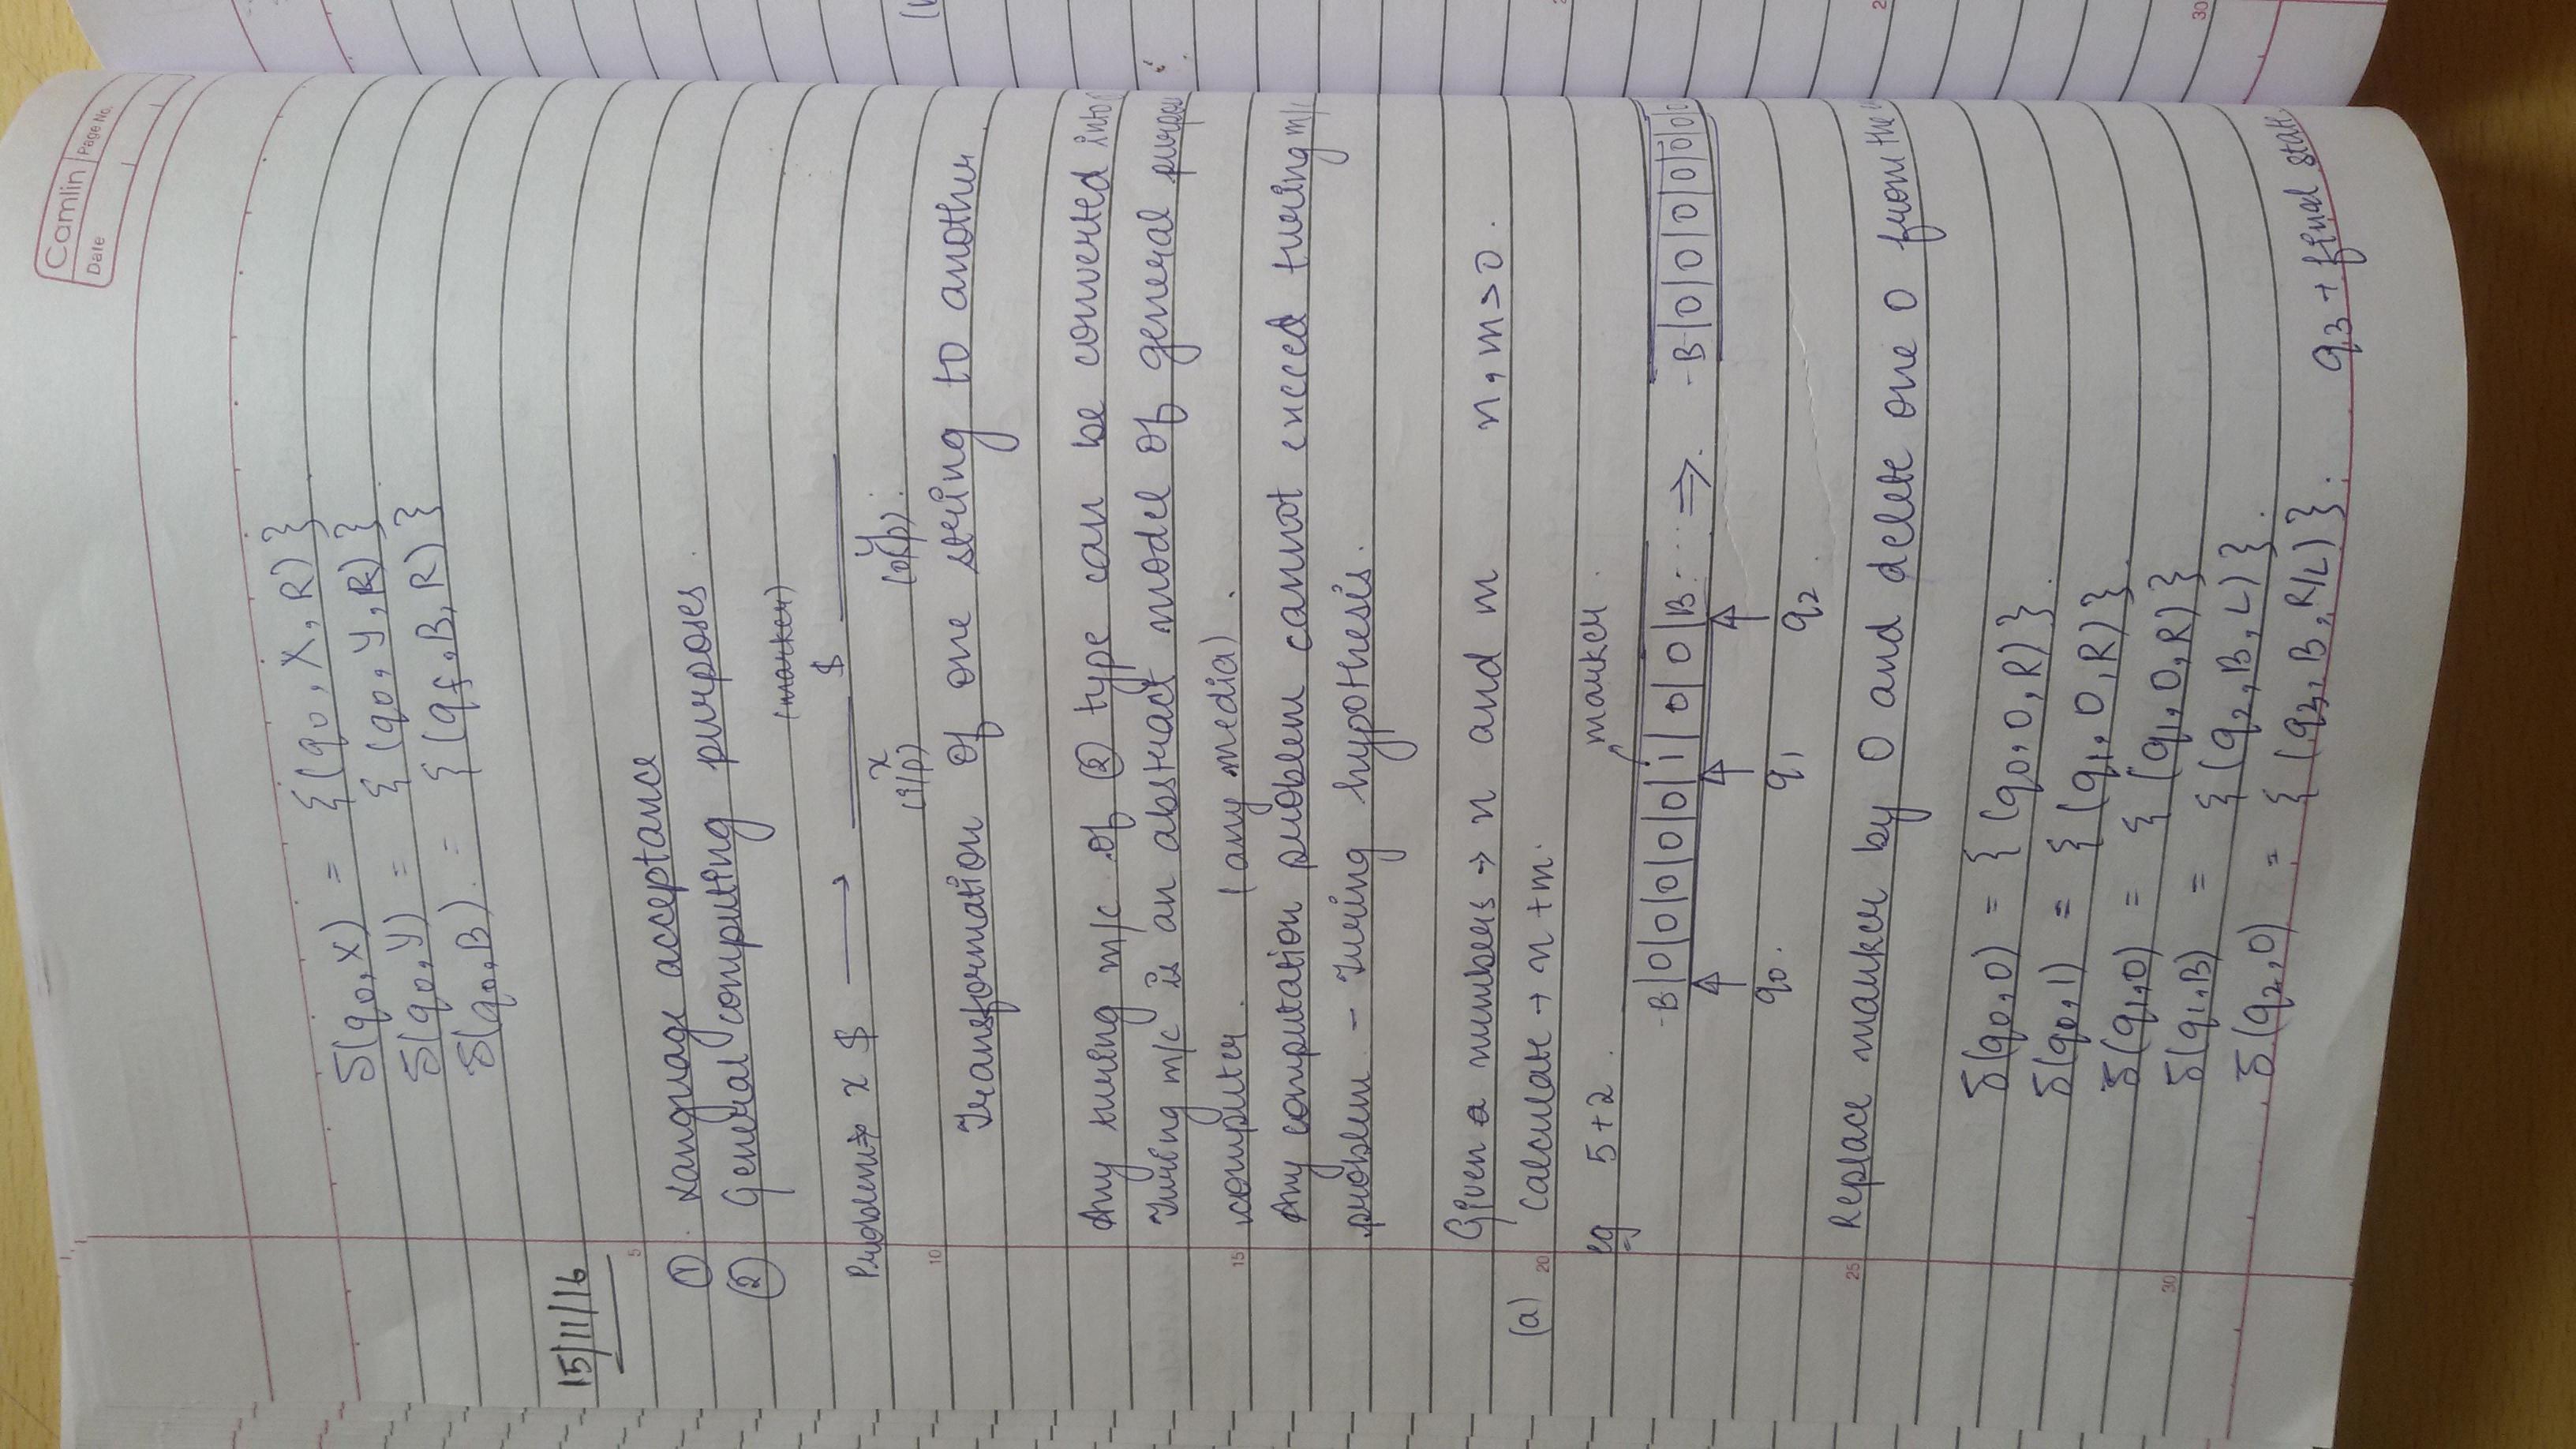 Camlin Page No.
Date
δ(q0,X) = {(q0, X, R)}
δ(q0,Y) = {(q0, Y, R)}
δ(q0,B) = {(qf, B, R)}
15/11/16
5
① Language acceptance
② General computing purposes.
(marker)
Problem → x $ ⟶ ____ $ ____
x y
(i/p) (o/p).
10
Transformation of one string to another
Any turing m/c of ② type can be converted into
Turing m/c is an abstract model of general
15 computer. (any media).
Any computation problem cannot exceed turing m/c
problem - Turing hypothesis.
Given 2 numbers → n and m n, m > 0.
(a) 20 Calculate → n + m.
eg 5+2. marker
B|0|0|0|0|0|1|0|0|B ... ⇒ B|0|0|0|0|0|0|0
q0. q1 q2.
25 Replace marker by 0 and delete one 0 from the
δ(q0,0) = {(q0, 0, R)}.
δ(q0,1) = {(q1, 0, R)}.
δ(q1,0) = {(q1, 0, R)}
30 δ(q1,B) = {(q2, B, L)}.
δ(q2,0) = {(q3, B, R/L)}. q3 → final state
30